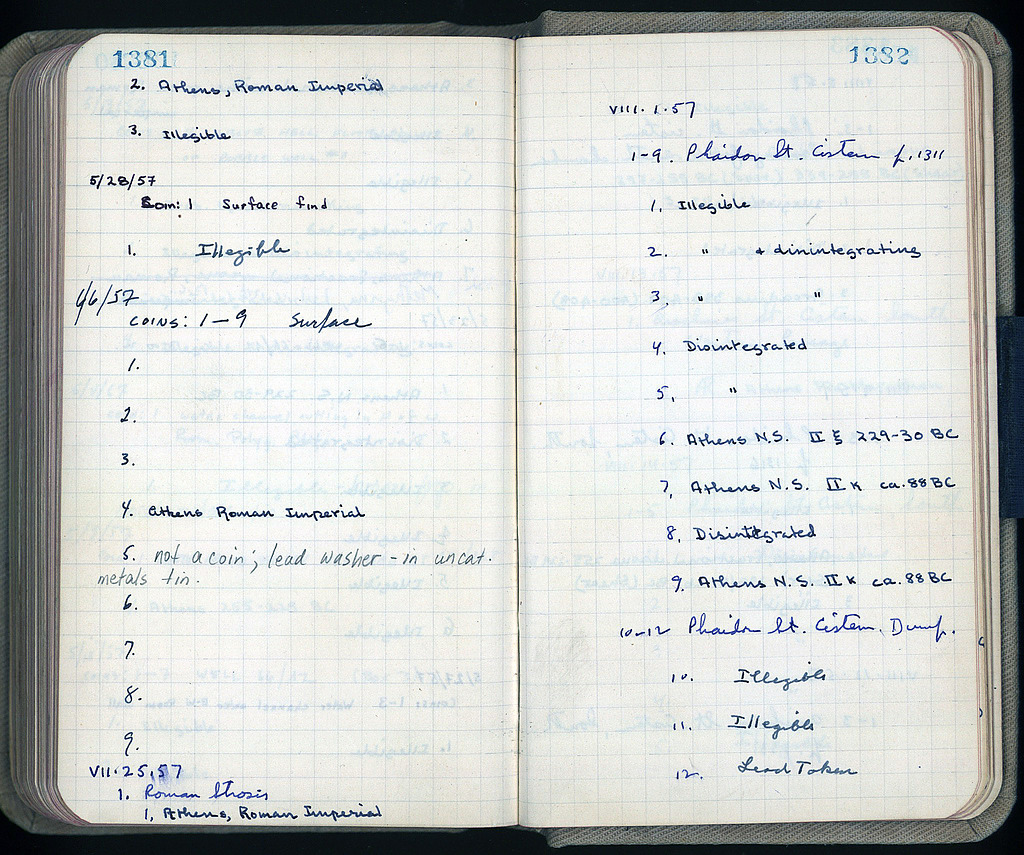 1381
2. Athens, Roman Imperial
3. Illegible
5/28/57
Coin: 1 Surface find
1. Illegible
6/6/57
COINS: 1-9 Surface
1.
2.
3.
4. Athens Roman Imperial
5. not a coin; lead washer - in uncat.
metals tin.
6.
7.
8.
9.
VII.25.57
1. Roman
1, Athens, Roman Imperial
1382
VIII.1.57
1-9. Phaidon St. Cistern p. 1311
1. Illegible
2. " + dinintegrating
3. " "
4. Disintegrated
5. "
6. Athens N.S. II ξ 229-30 BC
7, Athens N.S. II K ca. 88 BC
8, Disintegrated
9. Athens N.S. II K ca. 88 BC
10-12 Phaidon St. Cistern, Dump.
10. Illegible
11. Illegible
12. Lead Token